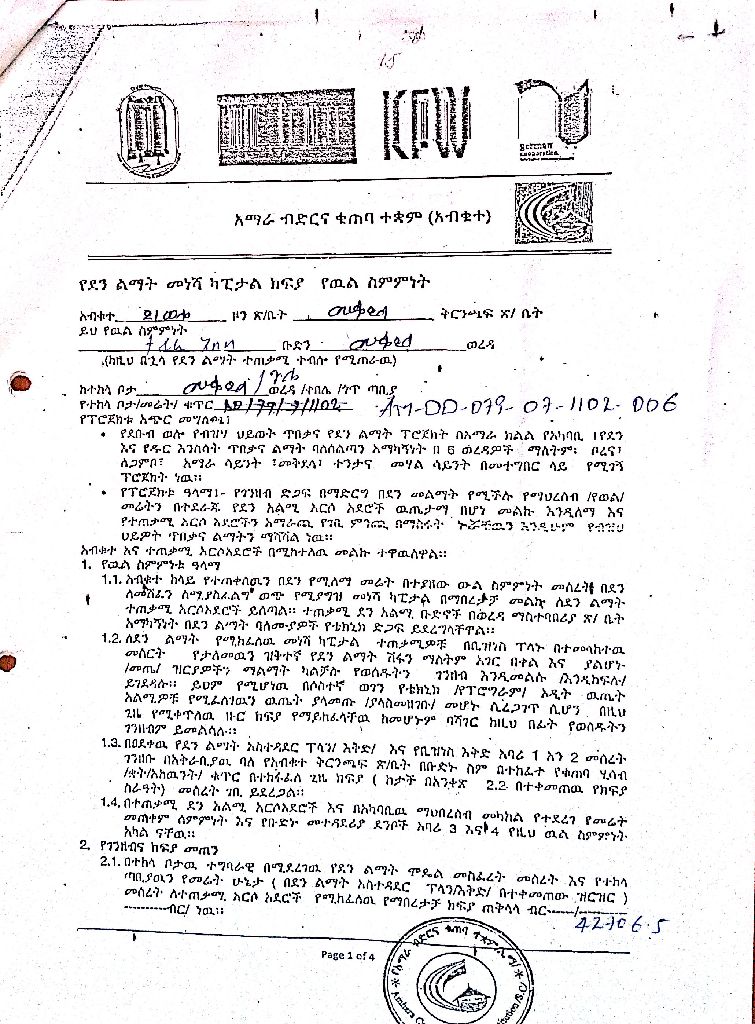 15
KFW
German
cooperation
አማራ ብድርና ቁጠባ ተቋም (አብቁተ)
የደን ልማት መነሻ ካፒታል ክፍያ የዉል ስምምነት
አብቁተ ደ/ወሎ ዞን ጽ/ቤት መቅደላ ቅርንጫፍ ጽ/ ቤት
ይህ የዉል ስምምነት
ቡድን መቅደላ ወረዳ
(ከዚህ በኋላ የደን ልማት ተጠቃሚ ተብሎ የሚጠራዉ)
ከተከላ ቦታ መቅደላ ወረዳ /ቀበሌ /ጎጥ ጣቢያ
የተከላ ቦታ/መሬት/ ቁጥር AM-DD-079-07-1102-006
የፕሮጀክቱ አጭር መግለጫ፤
• የደቡብ ወሎ የብዝሃ ህይወት ጥበቃና የደን ልማት ፕሮጀክት በአማራ ክልል የአካባቢ ፣የደን
እና የዱር እንስሳት ጥበቃና ልማት ባለስልጣን አማካኝነት በ 6 ወረዳዎች ማለትም፡ ቦረና፣
ለጋምቦ፣ አማራ ሳይንት ፣መቅደላ፣ ተንታና መሃል ሳይንት በመተግበር ላይ የሚገኝ
ፕሮጀክት ነዉ።
• የፕሮጀክቱ ዓላማ፤- የገንዘብ ድጋፍ በማድረግ በደን መልማት የሚችሉ የማህረሰብ /የወል/
መሬትን በተደራጁ የደን አልሚ አርሶ አደሮች ዉጤታማ በሆነ መልኩ እንዲለማ እና
የተጠቃሚ አርሶ አደሮችን አማራጪ የገቢ ምንጪ በማስፋት ኑሯቸዉን እንዲሁም የብዝሃ
ህይዎት ጥበቃና ልማትን ማሻሻል ነዉ።
አብቁተ እና ተጠቃሚ አርሶአደሮች በሚከተለዉ መልኩ ተዋዉለዋል።
1. የዉል ስምምነቱ ዓላማ
1.1. አብቁተ ከላይ የተጠቀሰዉን በደን የሚለማ መሬት በተያዘው ውል ስምምነት መሰረት በደን
ለመሸፈን ለሚያስፈልግ ወጭ የሚያግዝ መነሻ ካፒታል በማበረታቻ መልኩ ለደን ልማት
ተጠቃሚ አርሶአደሮች ይሰጣል። ተጠቃሚ ደን አልሚ ቡድኖች በወረዳ ማስተባበሪያ ጽ/ ቤት
አማካኝነት በደን ልማት ባለሙያዎች የቴክኒክ ድጋፍ ይደረግላቸዋል።
1.2. ለደን ልማት የሚከፈለዉ መነሻ ካፒታል ተጠቃሚዎቹ በቢዝነስ ፕላኑ በተመላከተዉ
መሰርት የታለመዉን ዝቅተኛ የደን ልማት ሽፋን ማለትም አገር በቀል እና ያልሆነ-
/መጤ/ ዝርያዎችን ማልማት ካልቻሉ የወሰዱትን ገንዘብ እንዲመልሱ /እንዲከፍሉ/
ይገደዳሉ። ይህም የሚሆነዉ በሶስተኛ ወገን የቴክኒክ /የፕሮግራም/ ኦዲት ዉጤት
አልሚዎቹ የሚፈለገዉን ዉጤት ያላመጡ /ያላስመዘገቡ/ መሆኑ ሲረጋገጥ ሲሆን በዚህ
ጊዜ የሚቀጥለዉ ዙር ክፍያ የማይከፈላቸዉ ከመሆኑም ባሻገር ከዚህ በፊት የወሰዱትን
ገንዘብም ይመልሳሉ።
1.3. በፀደቀዉ የደን ልማት አስተዳደር ፕላን/ እቅድ/ እና የቢዝነስ እቅድ አባሪ 1 እን 2 መሰረት
ገንዘቡ በአቅራቢያዉ ባለ የአብቁተ ቅርንጫፍ ጽ/ቤት በቡድኑ ስም በተከፈተ የቁጠባ ሂሳብ
/ቋት/አካዉንት/ ቁጥር በተከፋፈለ ጊዜ ክፍያ ( ከታች በአንቀጽ 2.2. በተቀመጠዉ የክፍያ
ስራዓት) መሰረት ገቢ ይደረጋል።
1.4. በተጠቃሚ ደን አልሚ አርሶአደሮች እና በአካባቢዉ ማህበረሰብ መካከል የተደረገ የመሬት
መጠቀም ስምምነት እና የቡድኑ መተዳደሪያ ደንቦች አባሪ 3 እና 4 የዚህ ዉል ስምምነት
አካል ናቸዉ።
2. የገንዘብና ክፍያ መጠን
2.1. በተከላ ቦታዉ ተግባራዊ በሚደረገዉ የደን ልማት ሞዴል መስፈረት መሰረት እና የተከላ
ጣቢያዉን የመሬት ሁኔታ ( በደን ልማት አስተዳደር ፕላን/እቅድ/ በተቀመጠው ዝርዝር )
መሰረት ለተጠቃሚ አርሶ አደሮች የሚከፈለዉ የማበረታቻ ክፍያ ጠቅላላ ብር-----/-----
---------ብር/ ነዉ። 42706.5
Page 1 of 4
የአማራ ብድርና ቁጠባ ተቋም
Amhara